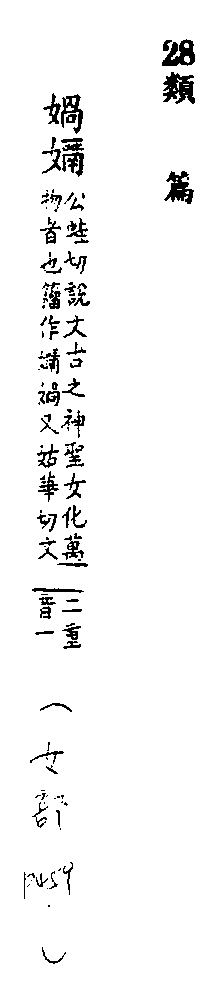 28類　篇
媧
公蛙切説文古之神聖女化萬
物者也籀作又姑華切文
二重
音一
（女部 p459.）